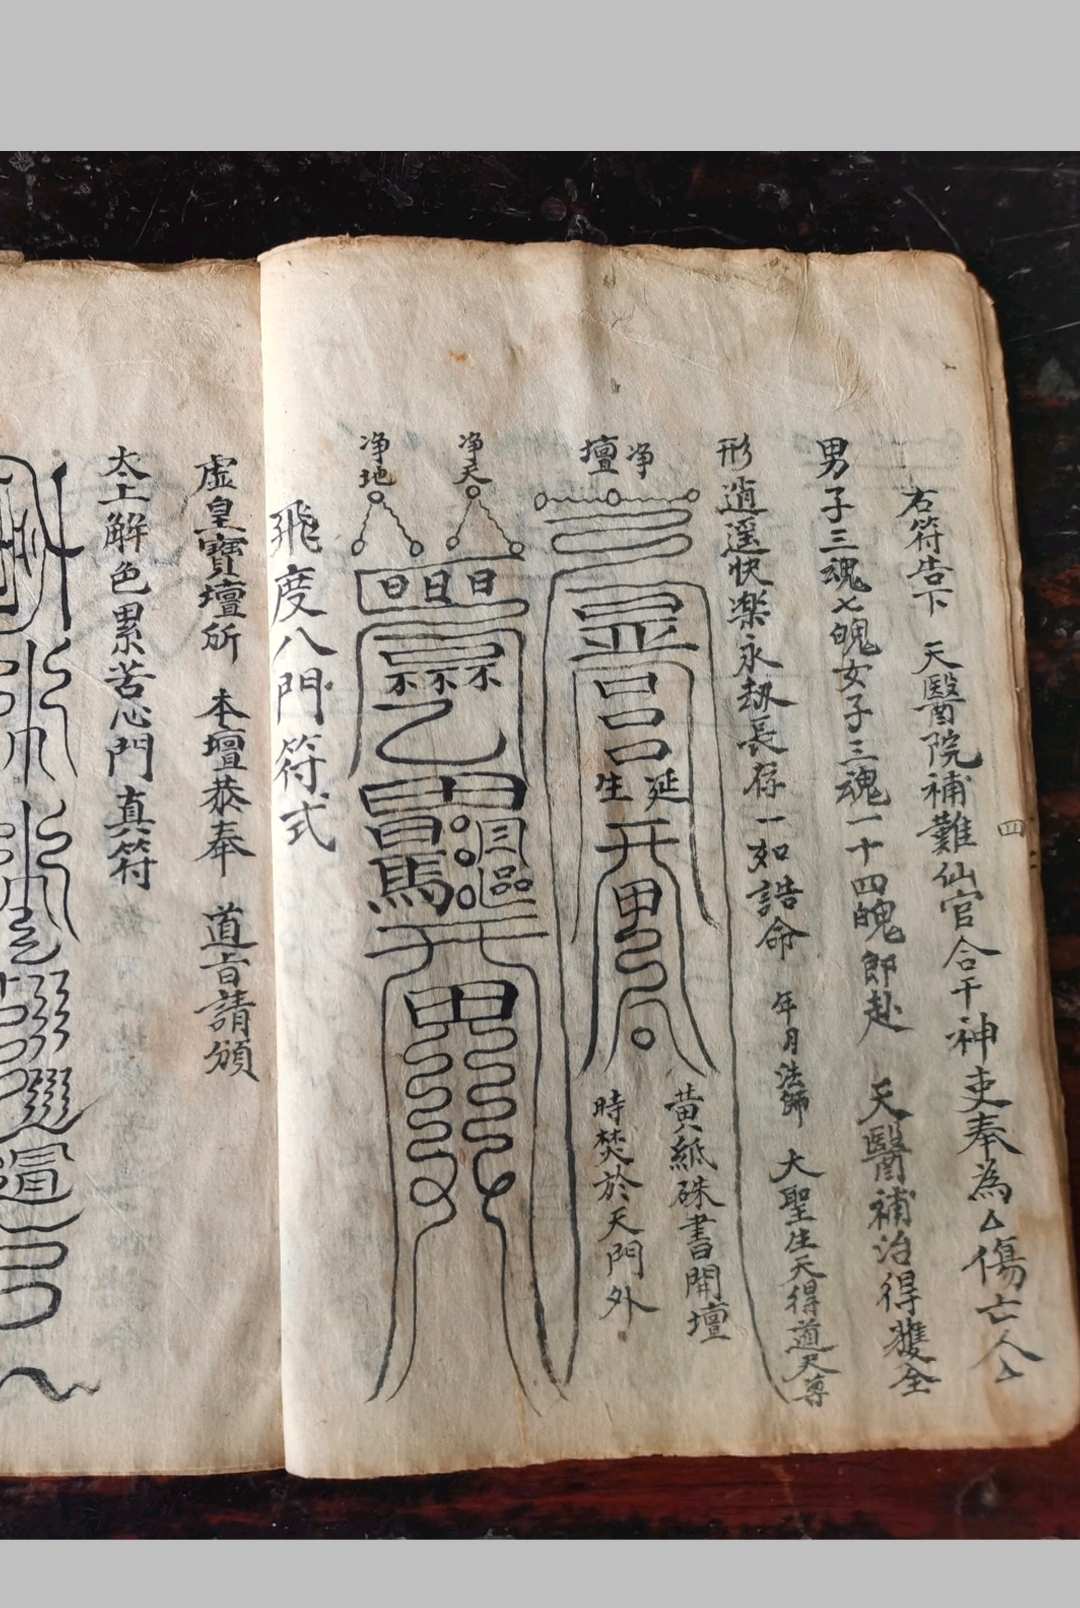 右符告下 天醫院補難仙官合干神吏奉為厶傷亡人厶
男子三魂七魄女子三魂一十四魄即赴 天醫補治得獲全
形逍遥快楽永劫長存一如誥命 年月法師 大聖生天得道天尊
净
壇
延
生
黄紙硃書開壇
時焚於天門外
净天
净地
日日日
不不不
飛度八門符式
虚皇寶壇所 本壇恭奉 道旨請頒
太上解色累苦心門真符
四